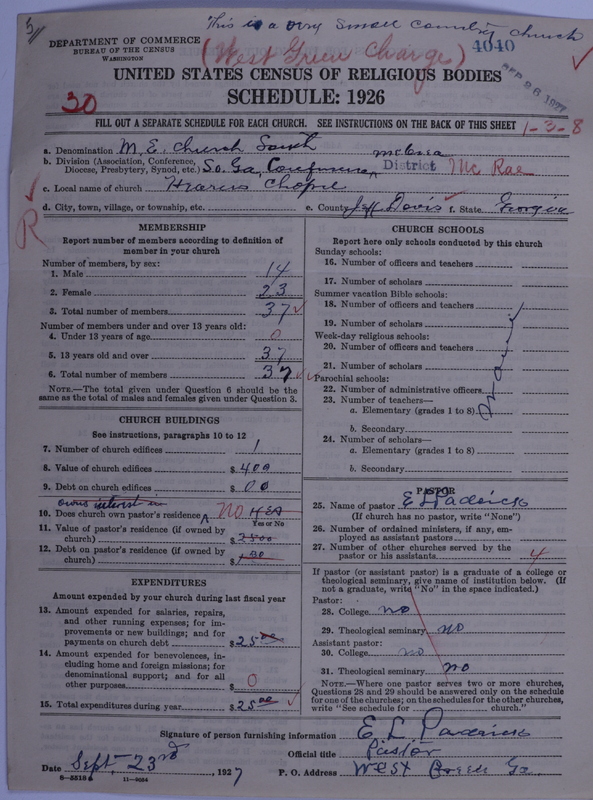 This is a very small country church
DEPARTMENT OF COMMERCE
BUREAU OF THE CENSUS
WASHINGTON
(West Green Charge)
4040
SEP 26 1927
UNITED STATES CENSUS OF RELIGIOUS BODIES
SCHEDULE: 1926
30
FILL OUT A SEPARATE SCHEDULE FOR EACH CHURCH. SEE INSTRUCTIONS ON THE BACK OF THIS SHEET
1-3-8
a. Denomination M. E. Church South
b. Division (Association, Conference, Diocese, Presbytery, Synod, etc.) So. Ga. Conference District Mc Rae
c. Local name of church Chapel
d. City, town, village, or township, etc. e. County Jeff Davis f. State Georgia
R
MEMBERSHIP
Report number of members according to definition of
member in your church
Number of members, by sex:
1. Male 14
2. Female 23
3. Total number of members 37
Number of members under and over 13 years old:
4. Under 13 years of age 0
5. 13 years old and over 37
6. Total number of members 37
NOTE.—The total given under Question 6 should be
same as the total of males and females given under Question 3.
CHURCH BUILDINGS
See instructions, paragraphs 10 to 12
7. Number of church edifices 1
8. Value of church edifices $ 400
9. Debt on church edifices $ 00
owns interest in
10. Does church own pastor's residence No Yes
Yes or No
11. Value of pastor's residence (if owned by
church) $ 2500
12. Debt on pastor's residence (if owned by
church) $
EXPENDITURES
Amount expended by your church during last fiscal year
13. Amount expended for salaries, repairs,
and other running expenses; for im-
provements or new buildings; and for
payments on church debt $ 25 00
14. Amount expended for benevolences, in-
cluding home and foreign missions; for
denominational support; and for all
other purposes $ 0
15. Total expenditures during year $ 25 00
CHURCH SCHOOLS
Report here only schools conducted by this church
Sunday schools:
16. Number of officers and teachers
17. Number of scholars
Summer vacation Bible schools:
18. Number of officers and teachers
19. Number of scholars
Week-day religious schools:
20. Number of officers and teachers
21. Number of scholars
Parochial schools:
22. Number of administrative officers
23. Number of teachers—
a. Elementary (grades 1 to 8)
b. Secondary
24. Number of scholars—
a. Elementary (grades 1 to 8)
b. Secondary
PASTOR
25. Name of pastor E L Padrick
(If church has no pastor, write "None")
26. Number of ordained ministers, if any, em-
ployed as assistant pastors
27. Number of other churches served by the
pastor or his assistants 4
If pastor (or assistant pastor) is a graduate of a college or
theological seminary, give name of institution below. (If
not a graduate, write "No" in the space indicated.)
Pastor:
28. College no
29. Theological seminary no
Assistant pastor:
30. College no
31. Theological seminary no
NOTE.—Where one pastor serves two or more churches,
Questions 28 and 29 should be answered only on the schedule
for one of the churches; on the schedules for the other churches,
write "See schedule for church."
Signature of person furnishing information E. L. Padrick
Official title Pastor
Date Sept. 23rd, 1927 P. O. Address West Green Ga.
8-5518a 11-9034